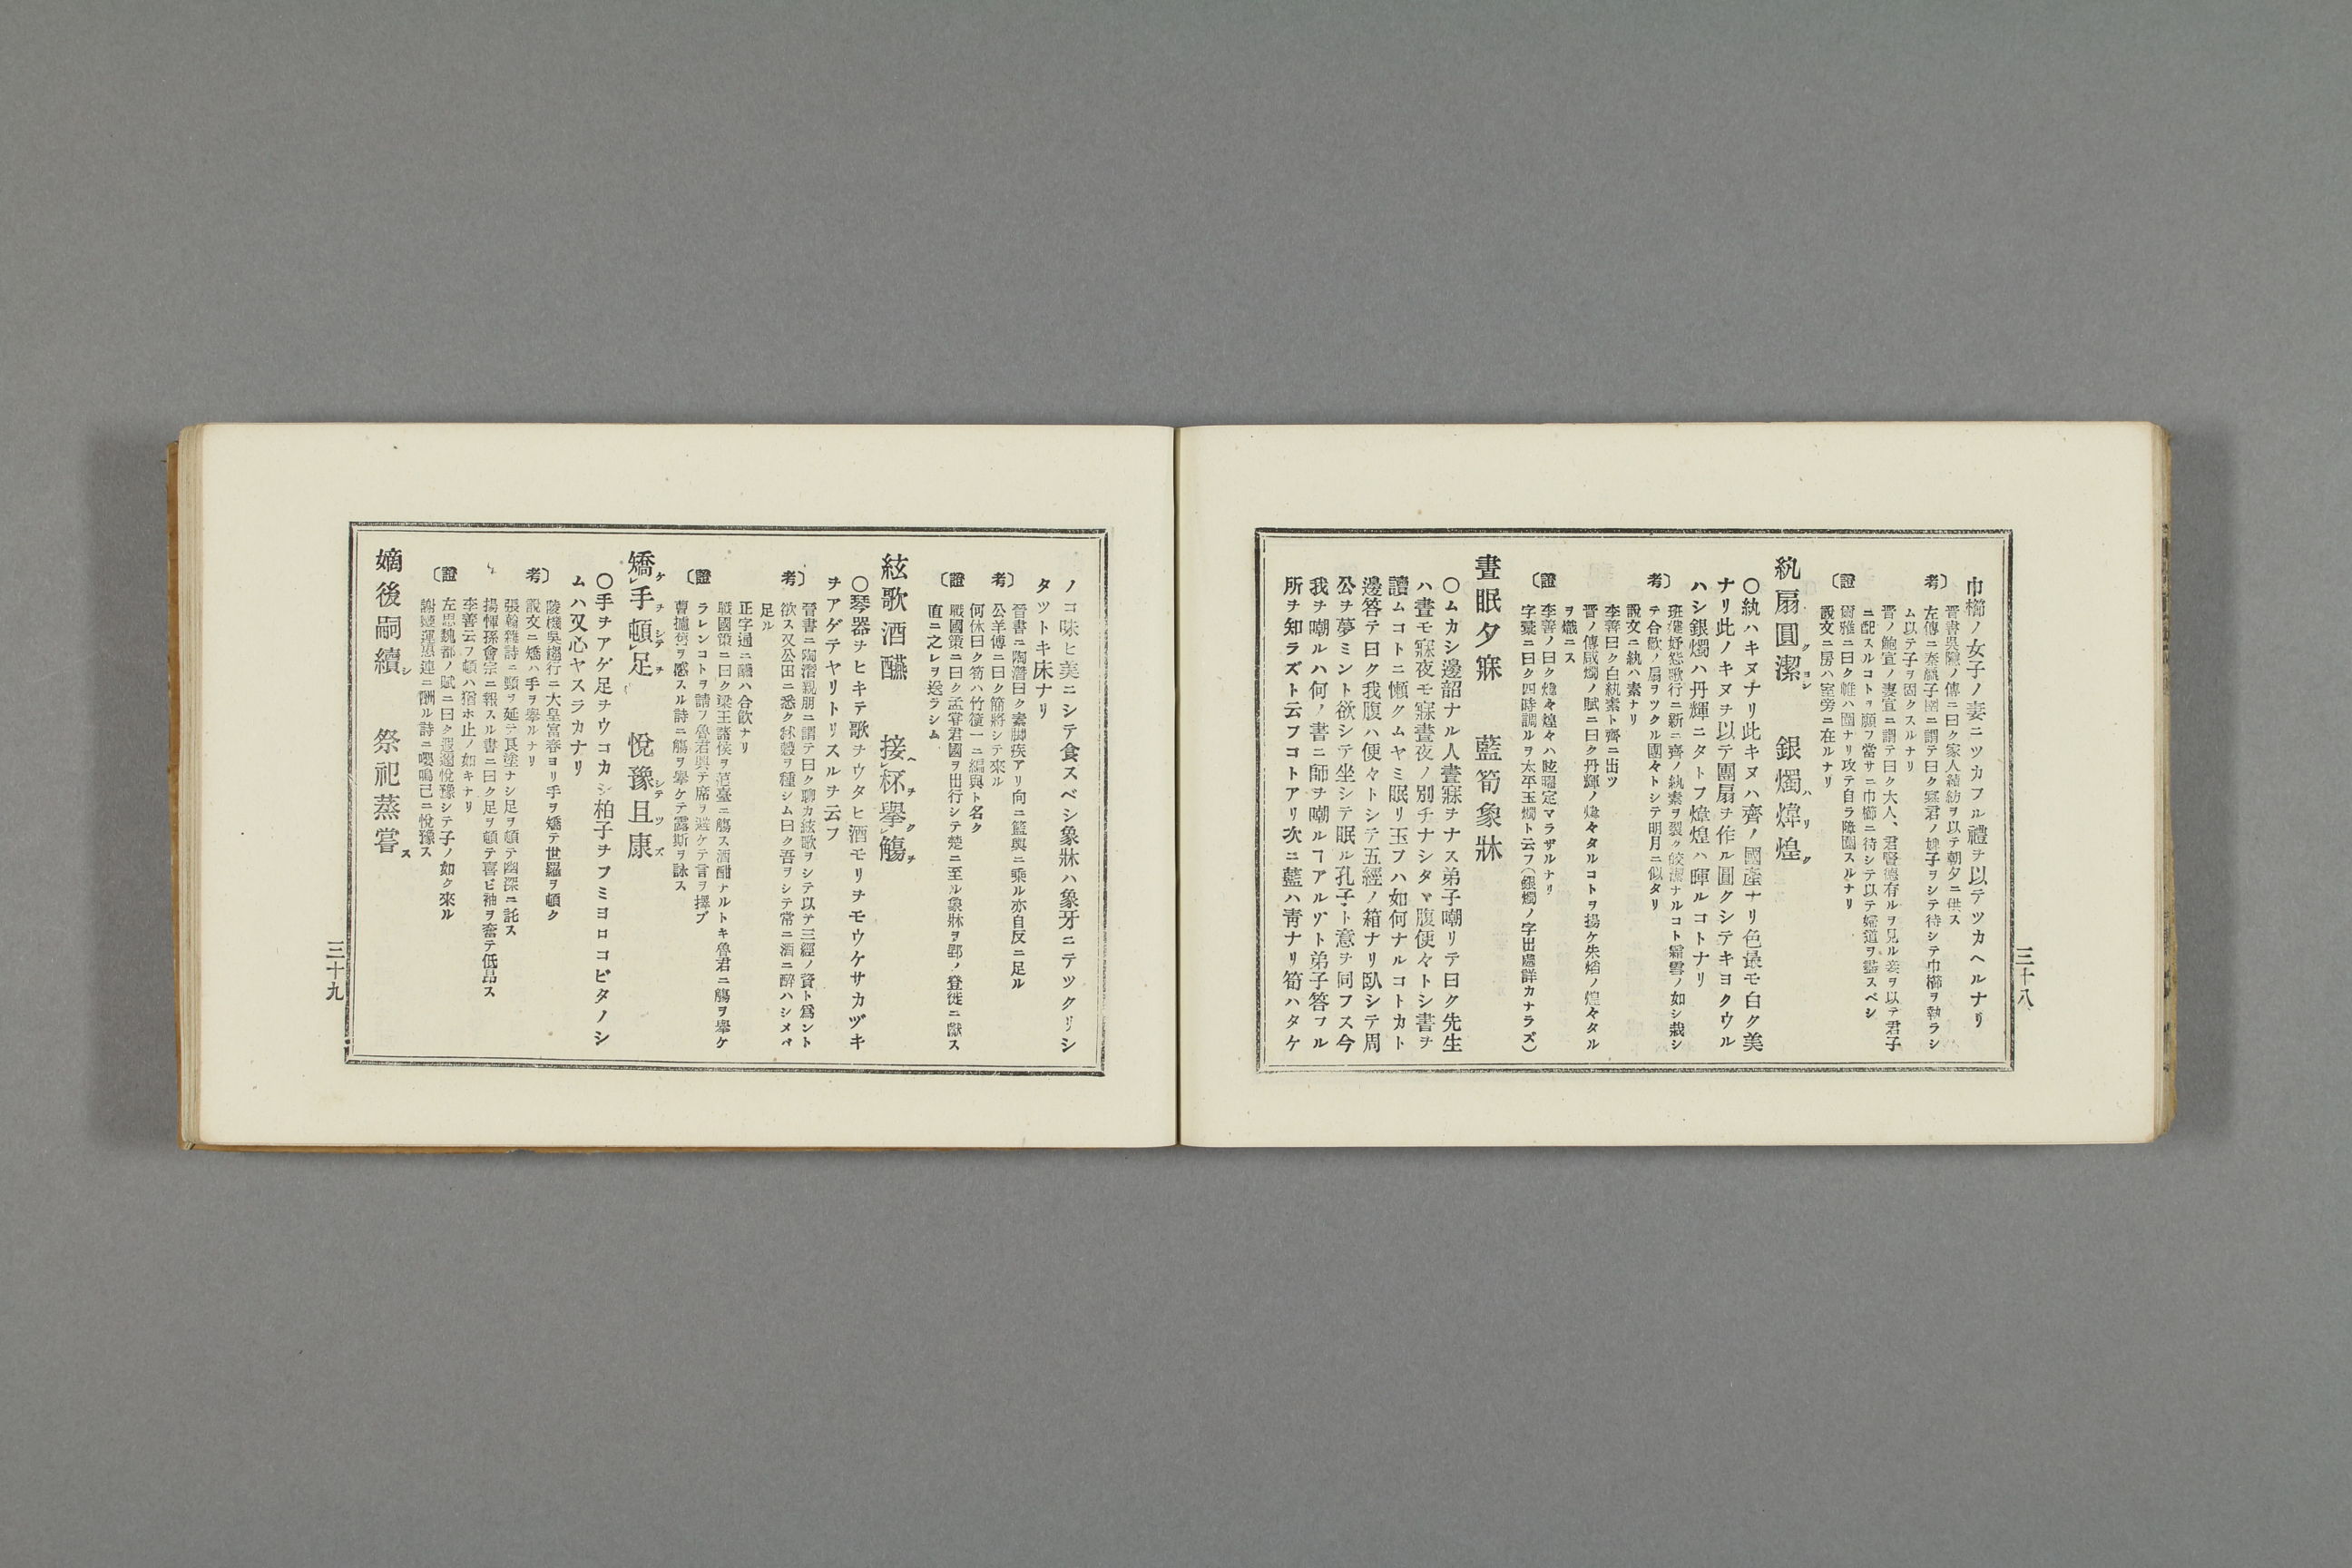 巾櫛ノ女子ノ妻ニツカフル禮ヲ以テツカヘルナリ
〔考〕
晋書吳隱ノ傳ニ曰ク家人績紡ヲ以テ朝夕ニ供ス
左傳ニ秦嬴子圉ニ謂テ曰ク寡君ノ婢子ヲシテ待シテ巾櫛ヲ執ラシ
ム以テ子ヲ固クスルナリ
晋ノ鮑宣ノ妻宣ニ謂テ曰ク大人、君賢德有ルヲ見ル妾ヲ以テ君子
ニ配スルコトヲ願フ當サニ巾櫛ニ待シテ以テ婦道ヲ盡スベシ
〔證〕
爾雅ニ曰ク帷ハ圍ナリ攻テ自ラ障圍スルナリ
說文ニ房ハ室旁ニ在ルナリ
紈扇圓潔 銀燭煒煌
〇紈ハキヌナリ此キヌハ齊ノ國產ナリ色最モ白ク美
ナリ此ノキヌヲ以テ團扇ヲ作ル圓クシテキヨクウル
ハシ銀燭ハ丹輝ニタトフ煒煌ハ暉ルコトナリ
〔考〕
班婕妤怨歌行ニ新ニ齊ノ紈素ヲ裂ク皎潔ナルコト霜雪ノ如シ裁シ
テ合歡ノ扇ヲツクル團々トシテ明月ニ似タリ
說文ニ紈ハ素ナリ
李善曰ク白紈素ト齊ニ出ツ
晋ノ傳咸燭ノ賦ニ曰ク丹輝ノ煒々タルコトヲ揚ケ朱焰ノ煌々タル
ヲ熾ニス
〔證〕
李善ノ曰ク煒々煌々ハ眩曜定マラザルナリ
字彙ニ曰ク四時調ルヲ太平玉燭ト云フ(銀燭ノ字出處詳カナラズ)
晝眠夕寐 藍筍象牀
〇ムカシ邊韶ナル人晝寐ヲナス弟子嘲リテ曰ク先生
ハ晝モ寐夜モ寐晝夜ノ別チナシタヾ腹便々トシ書ヲ
讀ムコトニ懶クムヤミ眠リ玉フハ如何ナルコトカト
邊答テ曰ク我腹ハ便々トシテ五經ノ箱ナリ臥シテ周
公ヲ夢ミント欲シテ坐シテ眠ル孔子ト意ヲ同フス今
我ヲ嘲ルハ何ノ書ニ師ヲ嘲ルヿアルゾト弟子答フル
所ヲ知ラズト云フコトアリ次ニ藍ハ靑ナリ筍ハタケ
三十八
ノコ味ヒ美ニシテ食スベシ象牀ハ象牙ニテツクリシ
タツトキ床ナリ
〔考〕
晉書ニ陶潛曰ク素脚疾アリ向ニ籃輿ニ乘ル亦自反ニ足ル
公羊傳ニ曰ク筍將シテ來ル
何休曰ク筍ハ竹箯一ニ編輿ト名ク
〔證〕
戰國策ニ曰ク孟嘗君國ヲ出行シテ楚ニ至ル象牀ヲ郢ノ登徒ニ獻ス
直ニ之レヲ送ラシム
絃歌酒醼 接杯擧觴
〇琴器ヲヒキテ歌ヲウタヒ酒モリヲモウケサカヅキ
ヲアゲテヤリトリスルヲ云フ
〔考〕
晉書ニ陶潛親朋ニ謂テ曰ク聊カ絃歌ヲシテ以テ三徑ノ資ト爲ント
欲ス又公田ニ悉ク秫穀ヲ種シム曰ク吾ヲシテ常ニ酒ニ醉ハシメバ
足ル
正字通ニ醼ハ合飮ナリ
〔證〕
戰國策ニ曰ク梁王諸侯ヲ范臺ニ觴ス酒酣ナルトキ魯君ニ觴ヲ擧ケ
ラレンコトヲ請フ魯君興テ席ヲ避ケテ言ヲ擇ブ
曹攄舊ヲ感スル詩ニ觴ヲ擧ケテ露斯ヲ詠ス
矯手頓足 悅豫且康
〇手ヲアゲ足ヲウコカシ柏子ヲフミヨロコビタノシ
ムハ又心ヤスラカナリ
〔考〕
陸機吳趨行ニ大皇富春ヨリ手ヲ矯テ世羅ヲ頓ク
說文ニ矯ハ手ヲ擧ルナリ
張翰雜詩ニ頸ヲ延テ良塗ナシ足ヲ頓テ幽深ニ託ス
揚惲孫會宗ニ報スル書ニ曰ク足ヲ頓テ喜ビ袖ヲ奮テ低昂ス
李善云フ頓ハ猶ホ止ノ如キナリ
〔證〕
左思魏都ノ賦ニ曰ク遐邇悅豫シテ子ノ如ク來ル
謝靈運惠連ニ酬ル詩ニ嚶鳴已ニ悅豫ス
嫡後嗣續 祭祀蒸嘗
三十九